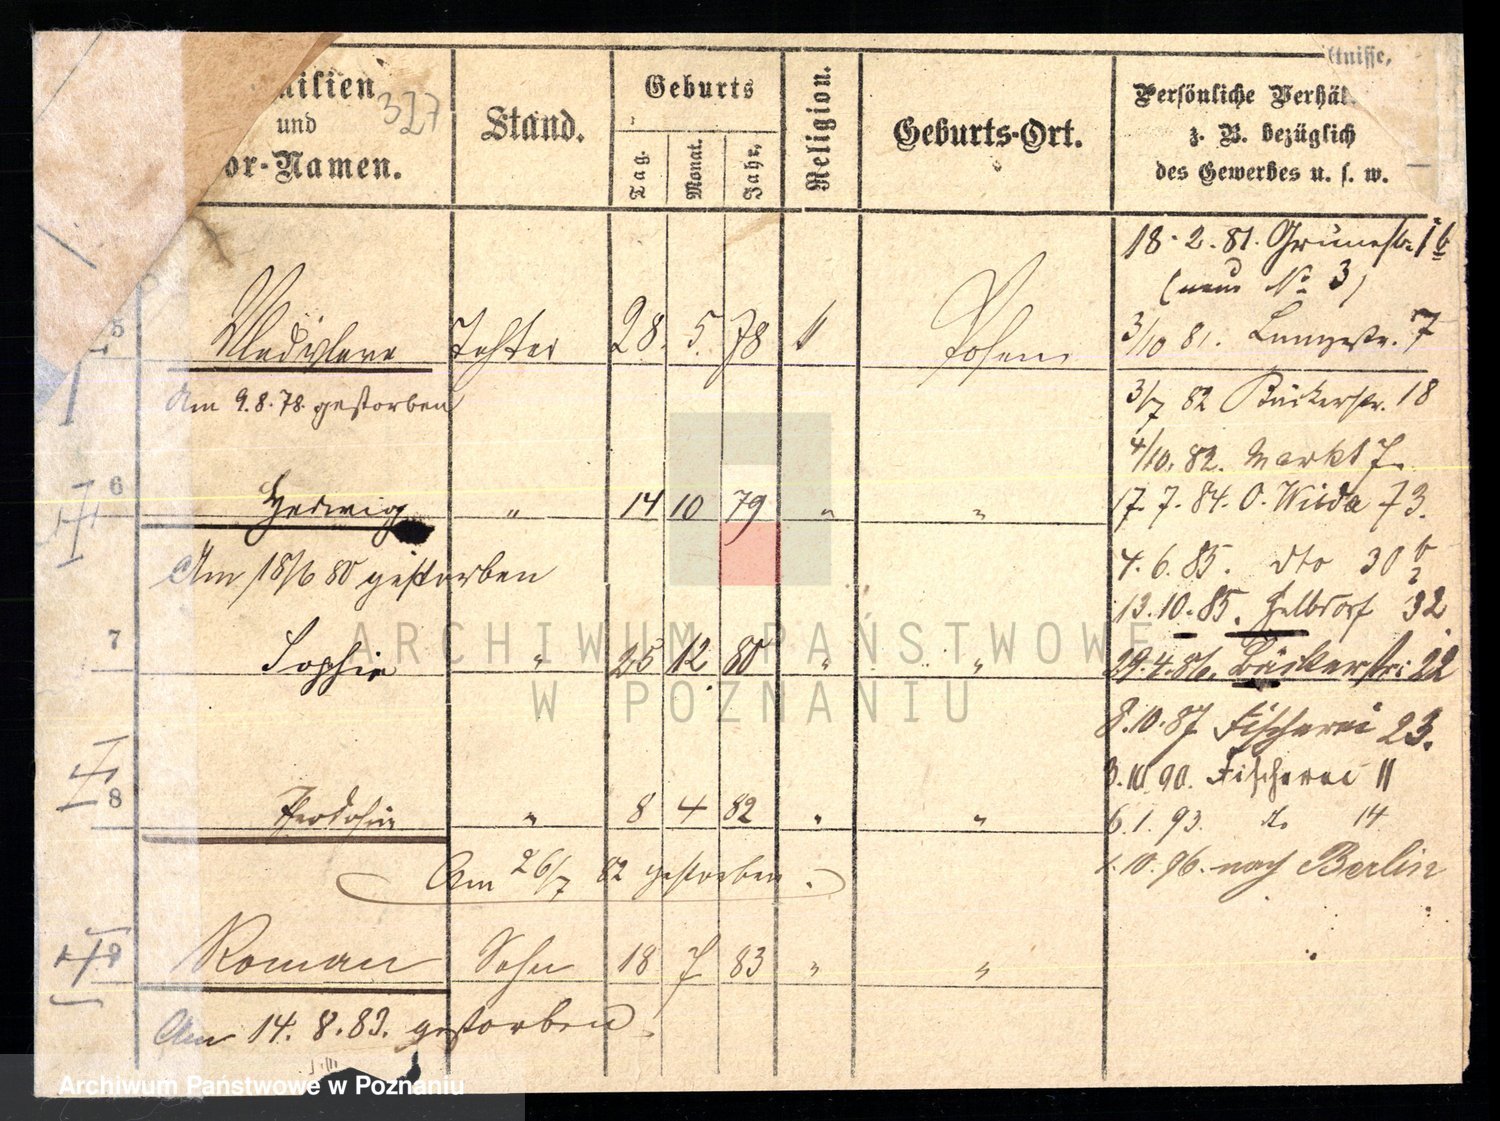 milien
und
or-Namen.
327
Stand.
Geburts
Tag.
Monat.
Jahr.
Religion.
Geburts-Ort.
ltnisse,
Persönliche Verhäl
z. B. bezüglich
des Gewerbes u. s. w.
18. 2. 81. Grünestr. 16
(neue No 3)
5 Tochter 28. 5. 78 Posen
3/10 81. Langestr. 7
Am 9.8.78. gestorben
3/7 82 Bäckerstr. 18
4/10. 82. Markt 7.
6 Hedwig " 14 10 79 " "
17. 7. 84. O. Wilda 73.
Am 18/6 80 gestorben
4. 6. 85. dto 30
13. 10. 85. 32
7 Sophie " 25 12 80 " "
29. 4. 86. Bäckerstr: 22
8. 10. 87 Fischerei 23.
3. 10. 90. Fischerei 11
8 Theodosia " 8 4 82 " "
6. 1. 93. do 14
Am 26/7 82 gestorben.
1. 10. 96. nach Berlin
9 Roman Sohn 18 7 83 " "
Am 14. 8. 83. gestorben
ARCHIWUM PAŃSTWOWE
W POZNANIU
Archiwum Państwowe w Poznaniu